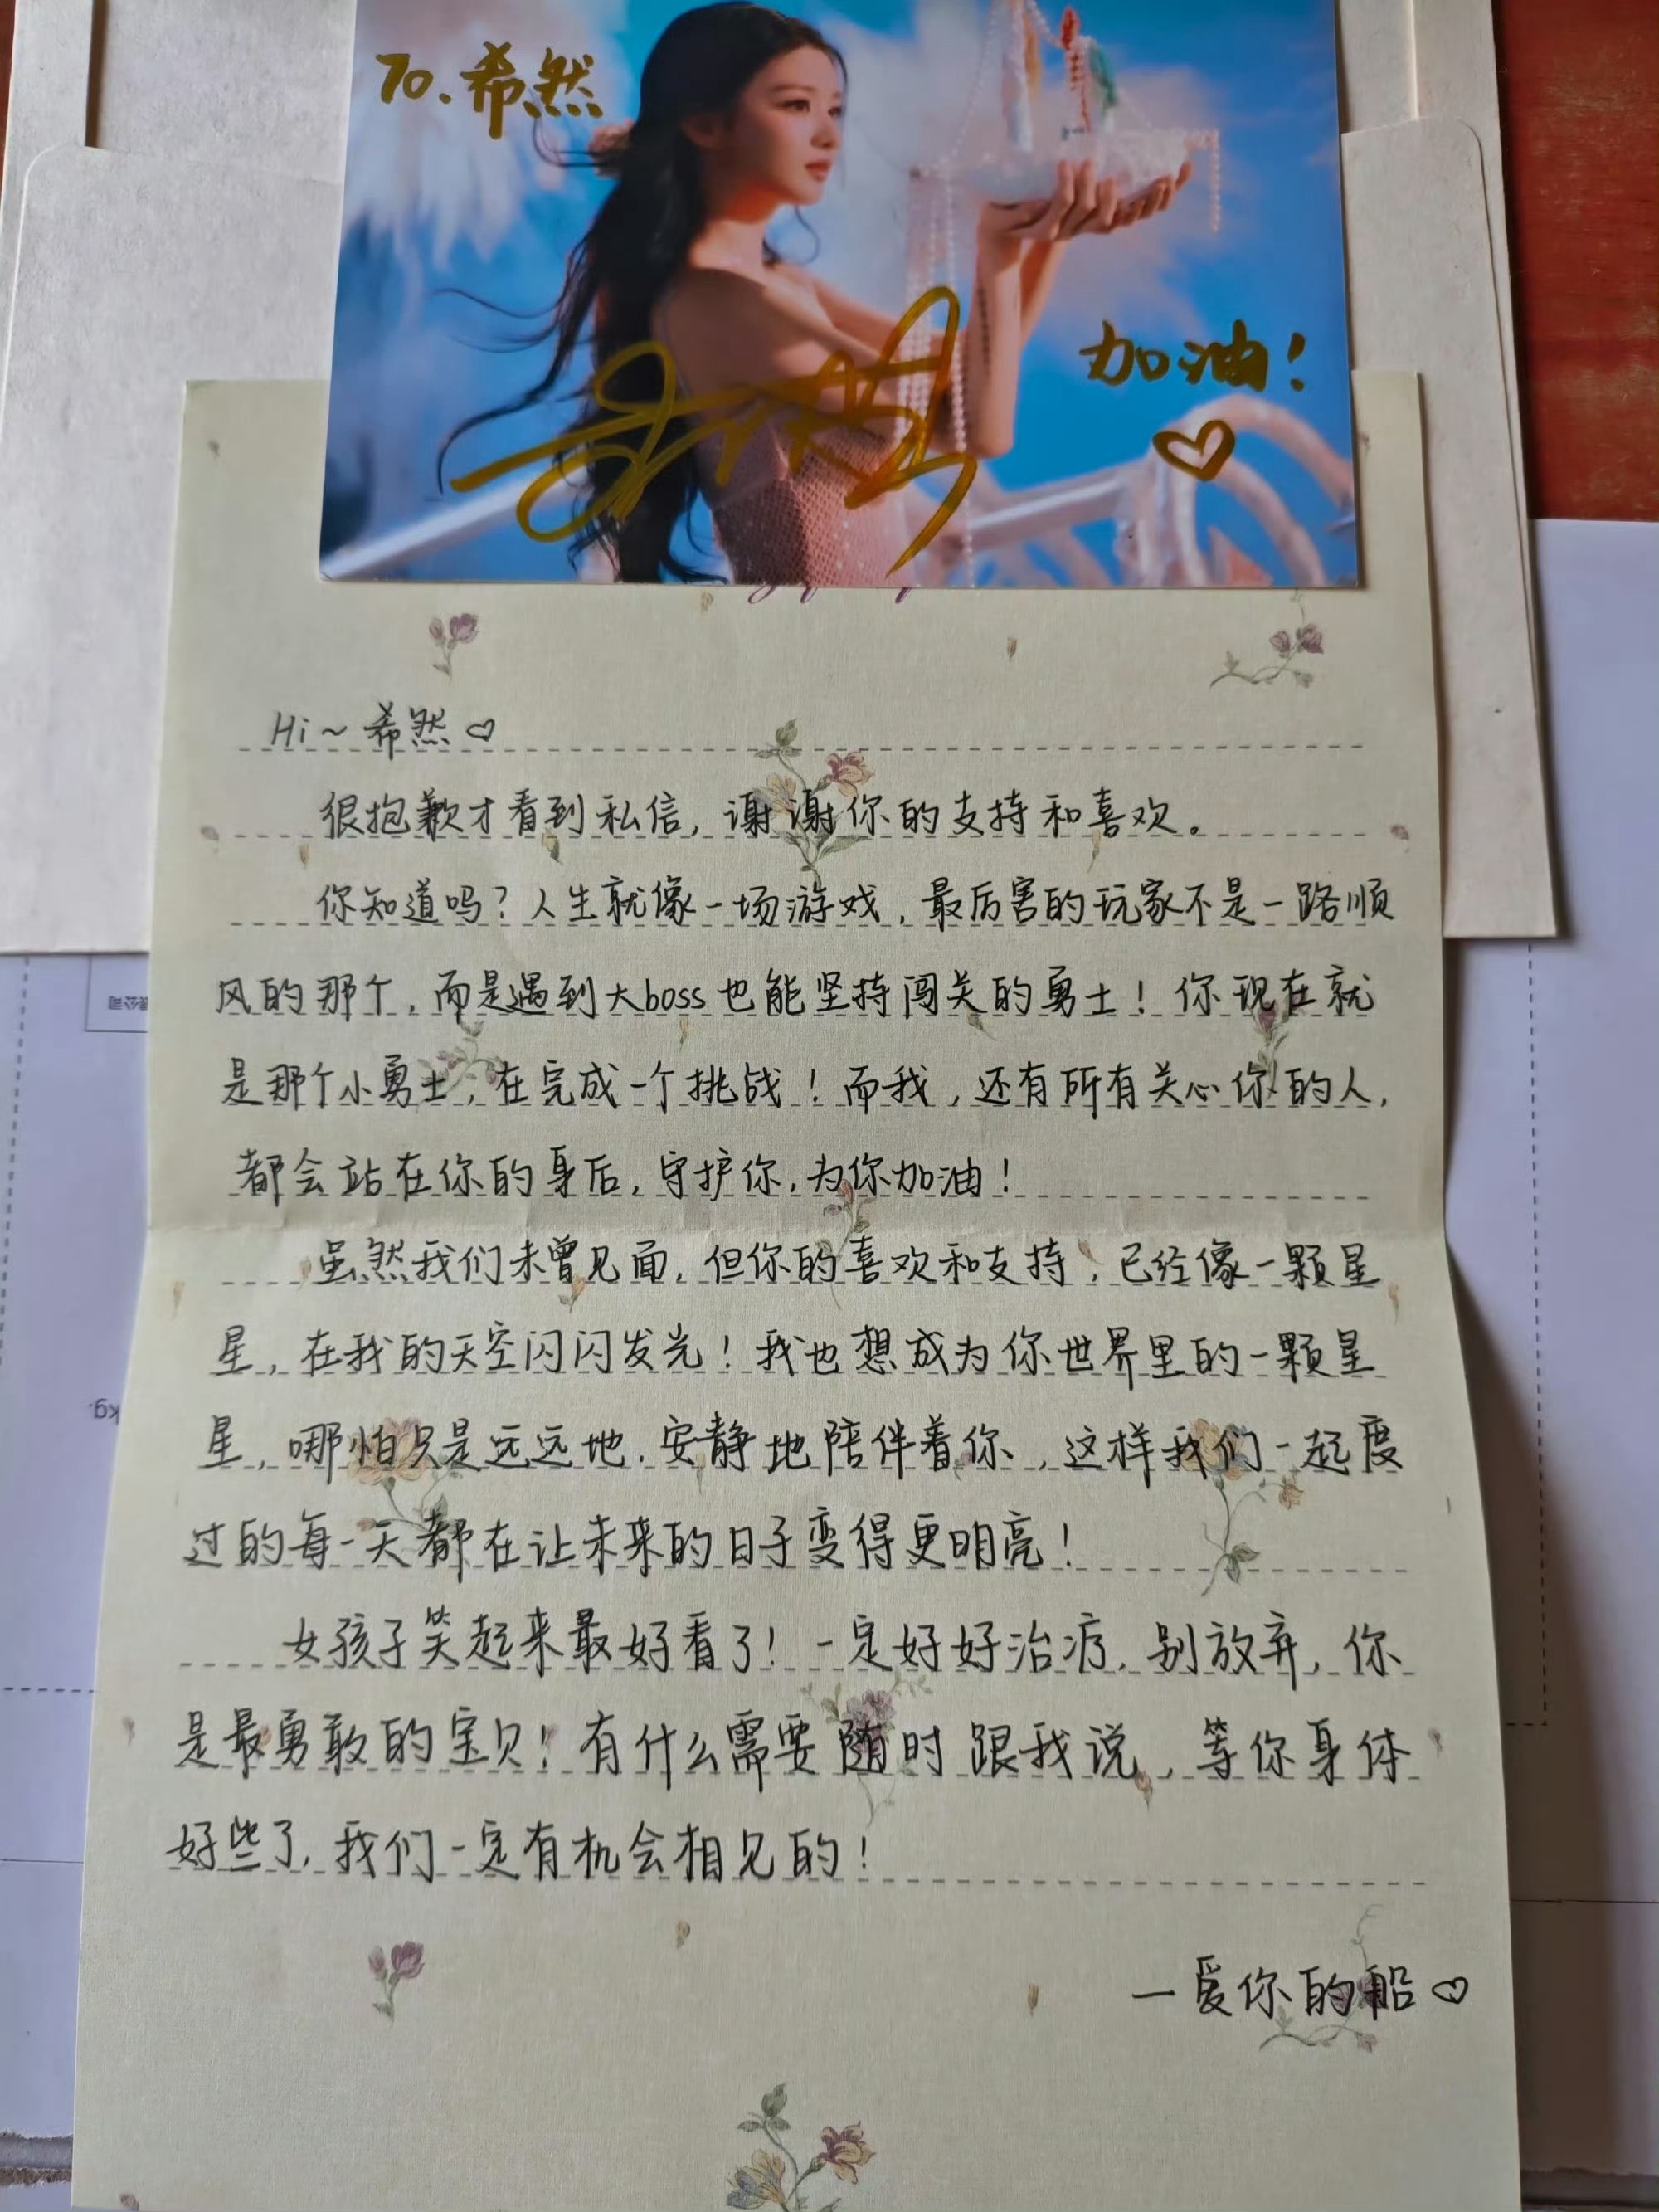 To. 希然
加油！
Hi～希然♡
很抱歉才看到私信，谢谢你的支持和喜欢。
你知道吗？人生就像一场游戏，最厉害的玩家不是一路顺
风的那个，而是遇到大boss也能坚持闯关的勇士！你现在就
是那个小勇士，在完成一个挑战！而我，还有所有关心你的人，
都会站在你的身后，守护你，为你加油！
虽然我们未曾见面，但你的喜欢和支持，已经像一颗星
星，在我的天空闪闪发光！我也想成为你世界里的一颗星
星，哪怕只是远远地，安静地陪伴着你，这样我们一起度
过的每一天都在让未来的日子变得更明亮！
女孩子笑起来最好看了！一定好好治疗，别放弃，你
是最勇敢的宝贝！有什么需要随时跟我说，等你身体
好些了，我们一定有机会相见的！
—爱你的船♡
kg.